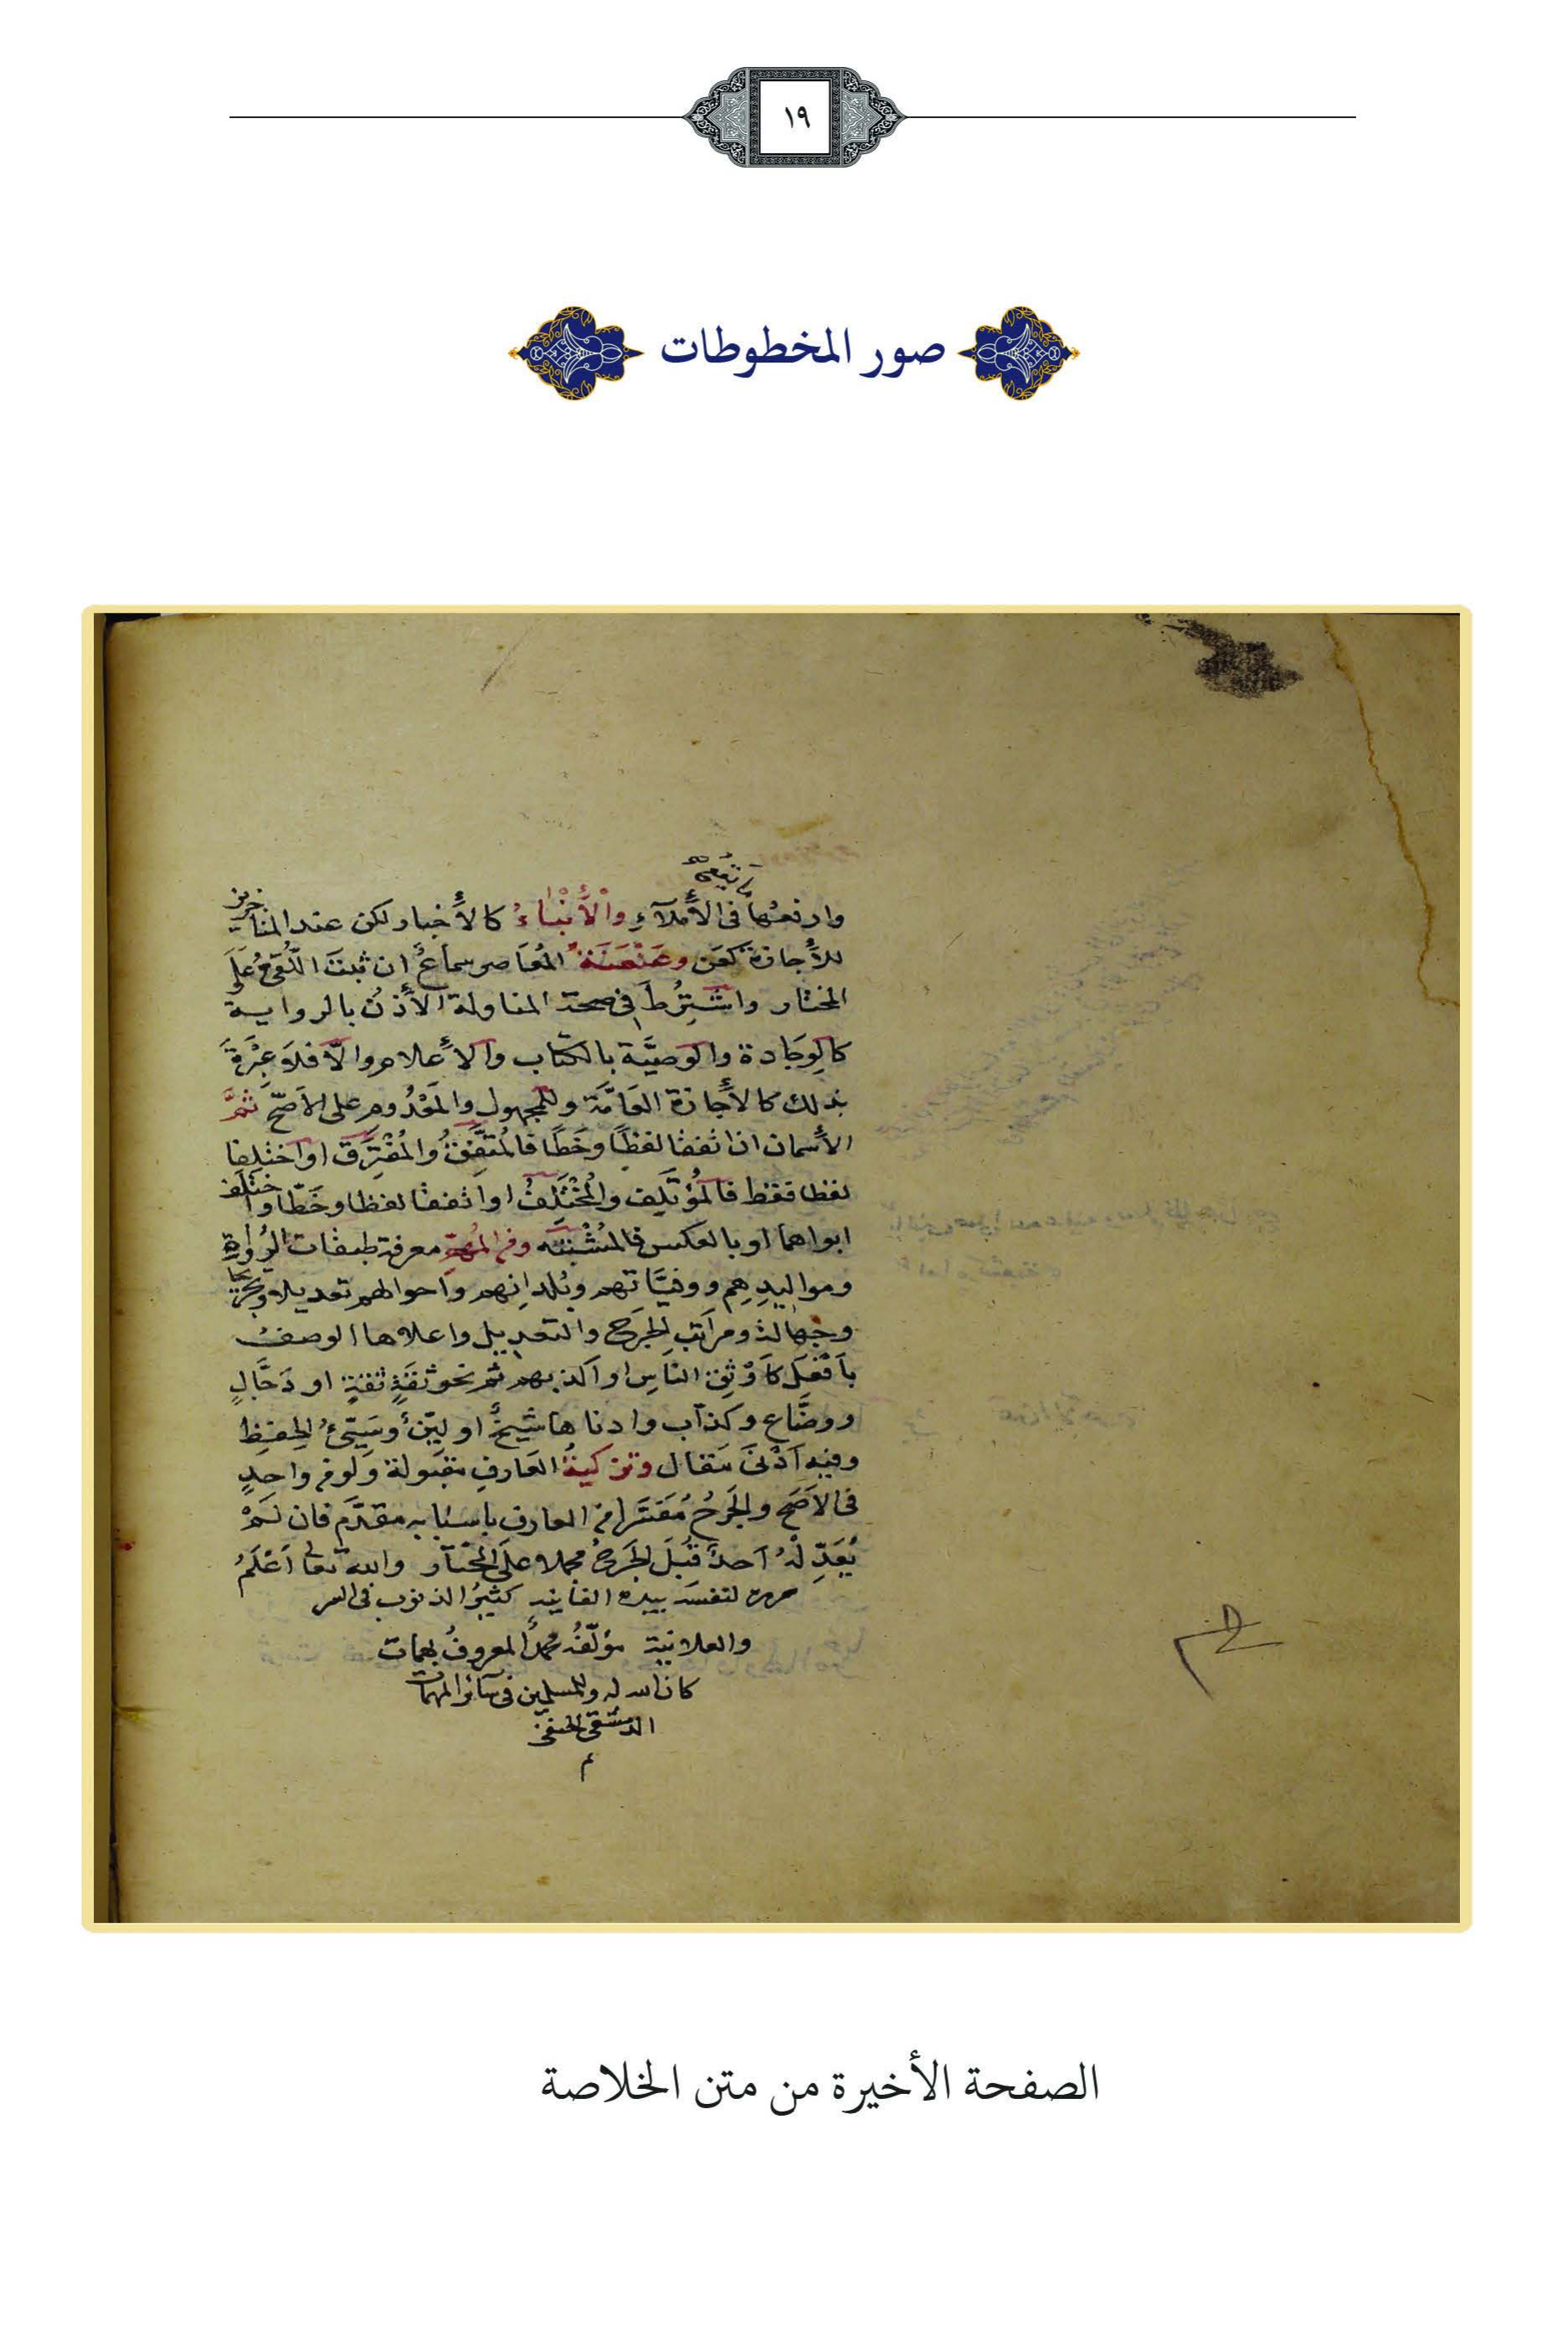 ١٩
صور المخطوطات
وارفعها في الأملآءِ والأنْباءُ كالأخبار لكن عند المتأخرين
للأجازة كعَن وعَنْعَنَة المُعَاصر سماعٌ ان ثبتَ اللُّقيُّ عَلَى
المختار واشتُرِطَ في صحة المناولة الأذنُ بالرواية
كالوِجَادة والوَصيَّة بالكتاب والأعلام والّا فلا عِبْرَةَ
بذلك كالأجازة العَامَّة وللمجهول والمَعْدُومِ على الاصَحّ ثمَّ
الأسمان اذا تفقا لفظًا وخَطًا فالمُتَّفِقُ والمُفْتَرِق او اختلفا
لفظا فقط فالمُؤتَلِف والمُخْتَلِفُ او اتفقا لفظا وخَطّا واختلف
ابواهما او بالعكس فالمُشْتَبَه ومن المُهِمّ معرفة طبقات الرُواةِ
ومواليدِهِم ووفيَّاتهم وبُلدانِهم وَاحوالهم تعديلا وتجريحا
وجَهَالة ومراتب الجَرح والتعديل واعلاها الوصفُ
بأفْعَلَ كَأَوْثق الناسِ او اكذبهم ثم نحو ثقَةٍ ثقةٍ او دَجَّالٍ
ووضَّاعٍ وكذاب وادناها شيخٌ او ليّنٌ وسَيّئُ الحِفظِ
وفيه أدْنَى مَقال وتزكيةُ العَارفِ مقبولة ولو من واحدٍ
في الاَصَح والجَرْحُ مُفَسَّرا من العارف باسبابه مقدَّم فان لَمْ
يُعَدِّلْهُ أحدٌ قُبِلَ الجَرحُ مجملا علَى المختار والله تعالى اَعْلَمُ
حرره لنفسه بيده الفانيه كثيرُ الذنوب في السر
والعلانية مؤلّفُه محمدٌ المعروفُ بهمات
كان الله له وللمسلمين في سآئر المهمات
الدمشقي الحنفي
م
الصفحة الأخيرة من متن الخلاصة